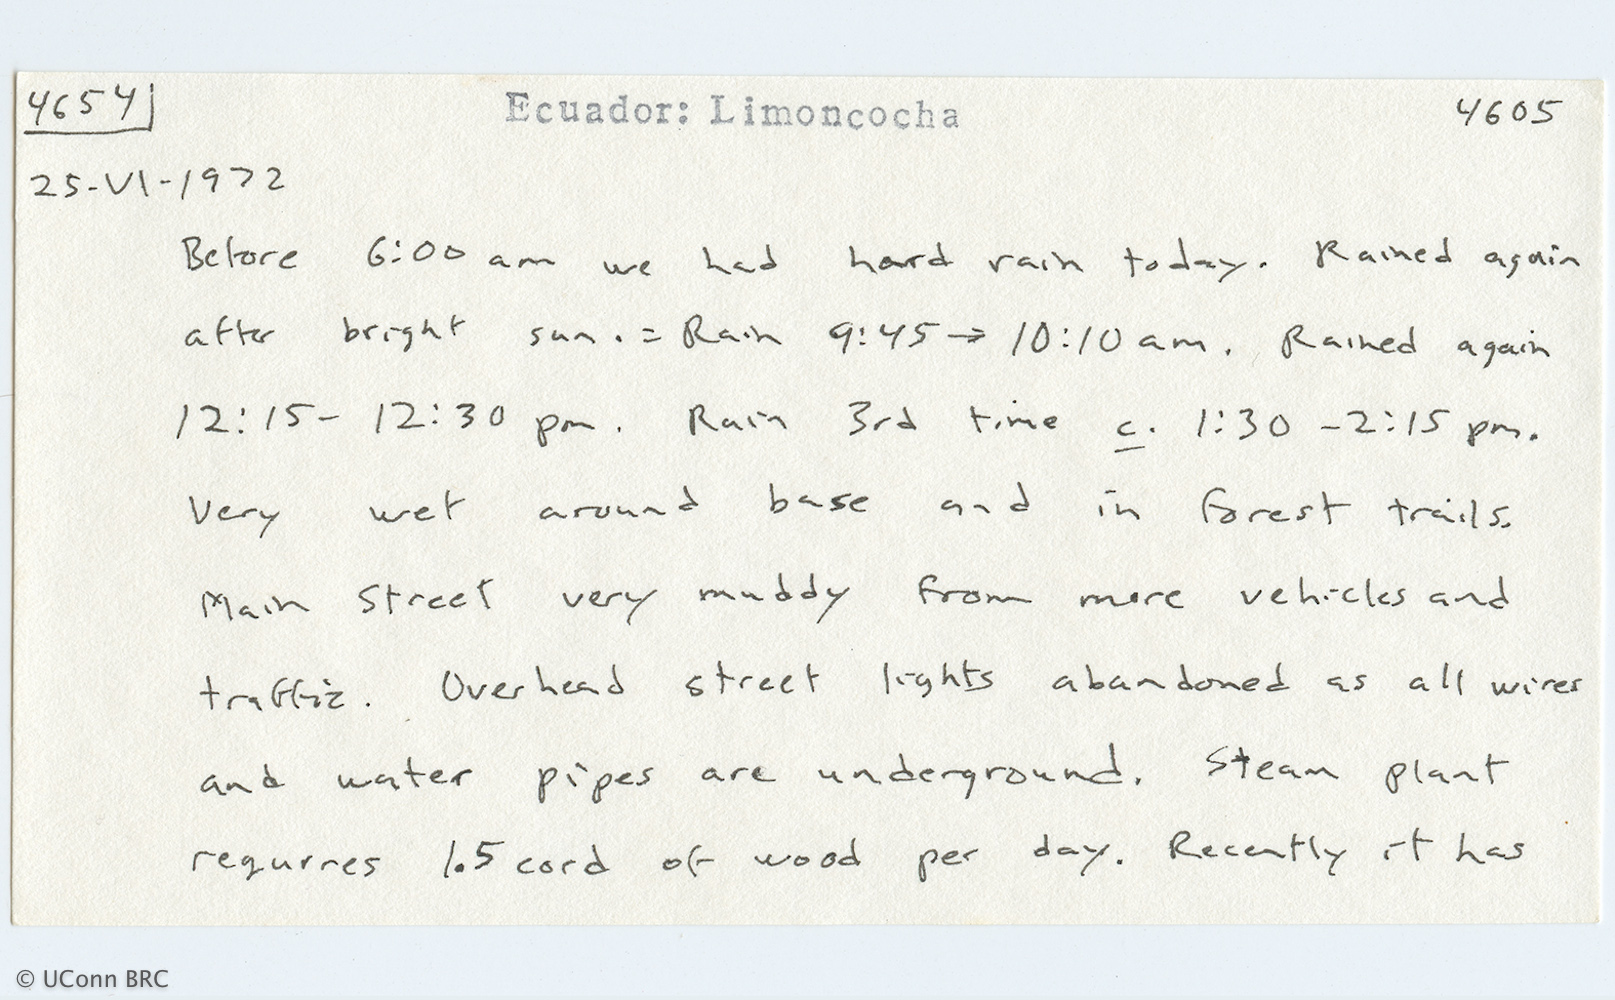 4654 Ecuador: Limoncocha 4605
25-VI-1972
Before 6:00 am we had hard rain today. Rained again
after bright sun. = Rain 9:45 → 10:10 am. Rained again
12:15- 12:30 pm. Rain 3rd time c. 1:30 - 2:15 pm.
Very wet around base and in forest trails.
Main Street very muddy from more vehicles and
traffic. Overhead street lights abandoned as all wires
and water pipes are underground. Steam plant
requires 1.5 cord of wood per day. Recently it has
© UConn BRC